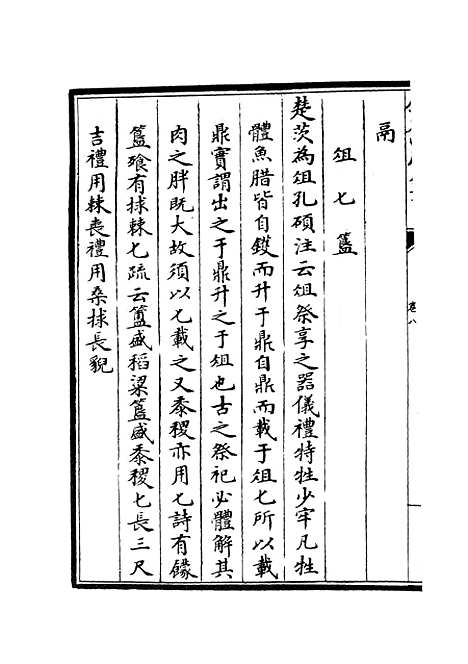 鬲
俎匕簠
楚茨為俎孔碩注云俎祭享之器儀禮特牲少牢凡牲
體魚腊皆自鑊而升于鼎自鼎而載于俎匕所以載
鼎實謂出之于鼎升之于俎也古之祭祀必體解其
肉之胖既大故須以匕載之又黍稷亦用匕詩有饛
簋飱有捄棘匕疏云簠盛稻粱簋盛黍稷匕長三尺
吉禮用棘喪禮用桑捄長貌
卷八